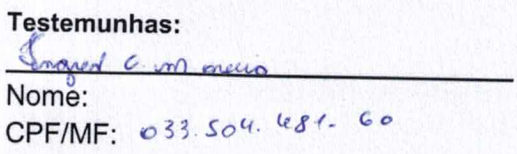 Testemunhas:
Ingred C. M.
Nome:
CPF/MF: 033.504.481-60